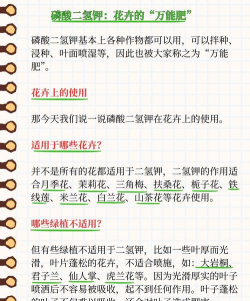 磷酸二氢钾：花卉的“万能肥”
磷酸二氢钾基本上各种作物都可以用，可以拌种、
浸种、叶面喷湿等，因此也被大家称之为“万能
肥”。
花卉上的使用
那今天我们说一说磷酸二氢钾在花卉上的使用。
适用于哪些花卉？
并不是所有的花都适用于二氢钾，二氢钾的作用适
合月季花、茉莉花、三角梅、扶桑花、栀子花、铁
线莲、米兰花、白兰花、山茶花等花卉使用。
哪些绿植不适用？
但有些绿植不适用于二氢钾，比如一些叶厚而光
滑，叶片蓬松的花卉，不适合喷施，如：大岩桐、
君子兰、仙人掌、虎兰花等。因为光滑厚实的叶子
喷洒后不容易被吸收，起不到任何作用。叶子蓬松